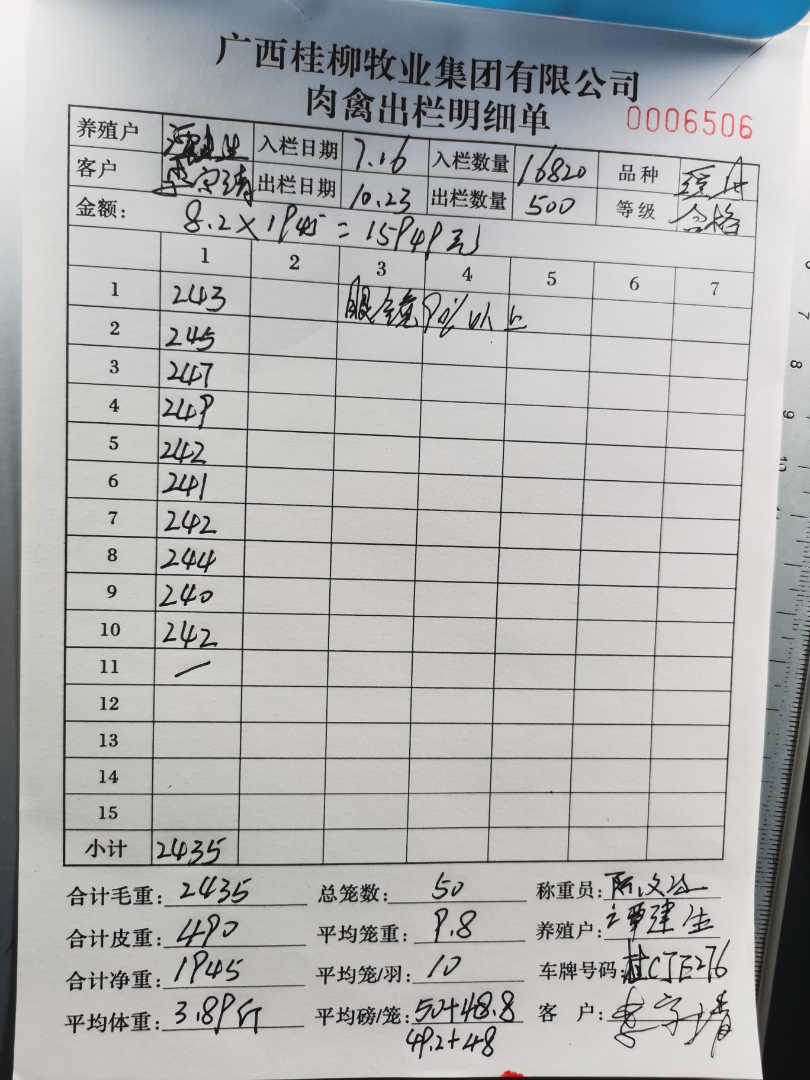 广西桂柳牧业集团有限公司
肉禽出栏明细单 0006506
养殖户 入栏日期 7.16 入栏数量 16820 品种
客户 出栏日期 10.23 出栏数量 500 等级 合格
金额: 8.2×1945=15949元
1 2 3 4 5 6 7
1 243 眼镜90%以上
2 245
3 247
4 249
5 242
6 241
7 242
8 244
9 240
10 242
11 —
12
13
14
15
小计 2435
合计毛重: 2435 总笼数: 50 称重员:
合计皮重: 490 平均笼重: 9.8 养殖户: 覃建生
合计净重: 1945 平均笼/羽: 10 车牌号码: 桂CJE276
平均体重: 3.89斤 平均磅/笼: 50+48.8 客 户:
49.2+48